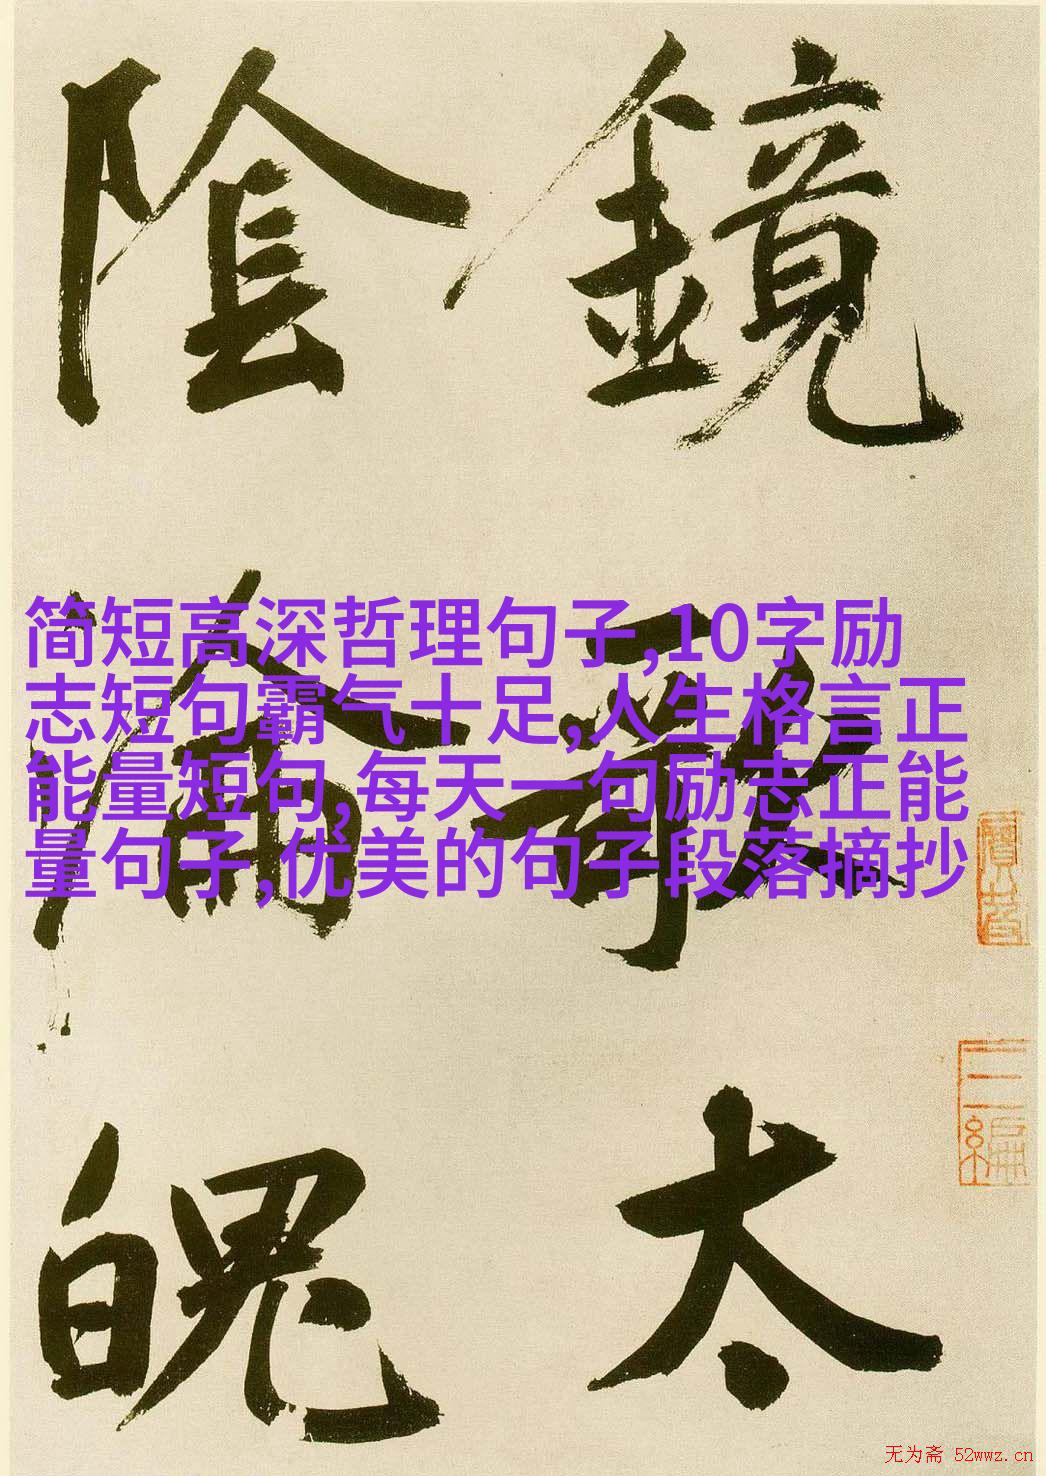 鏡歌太
陰淪魄
简短高深哲理句子,10字励
志短句霸气十足,人生格言正
能量短句,每天一句励志正能
量句子,优美的句子段落摘抄
无为斋 52wwz.cn